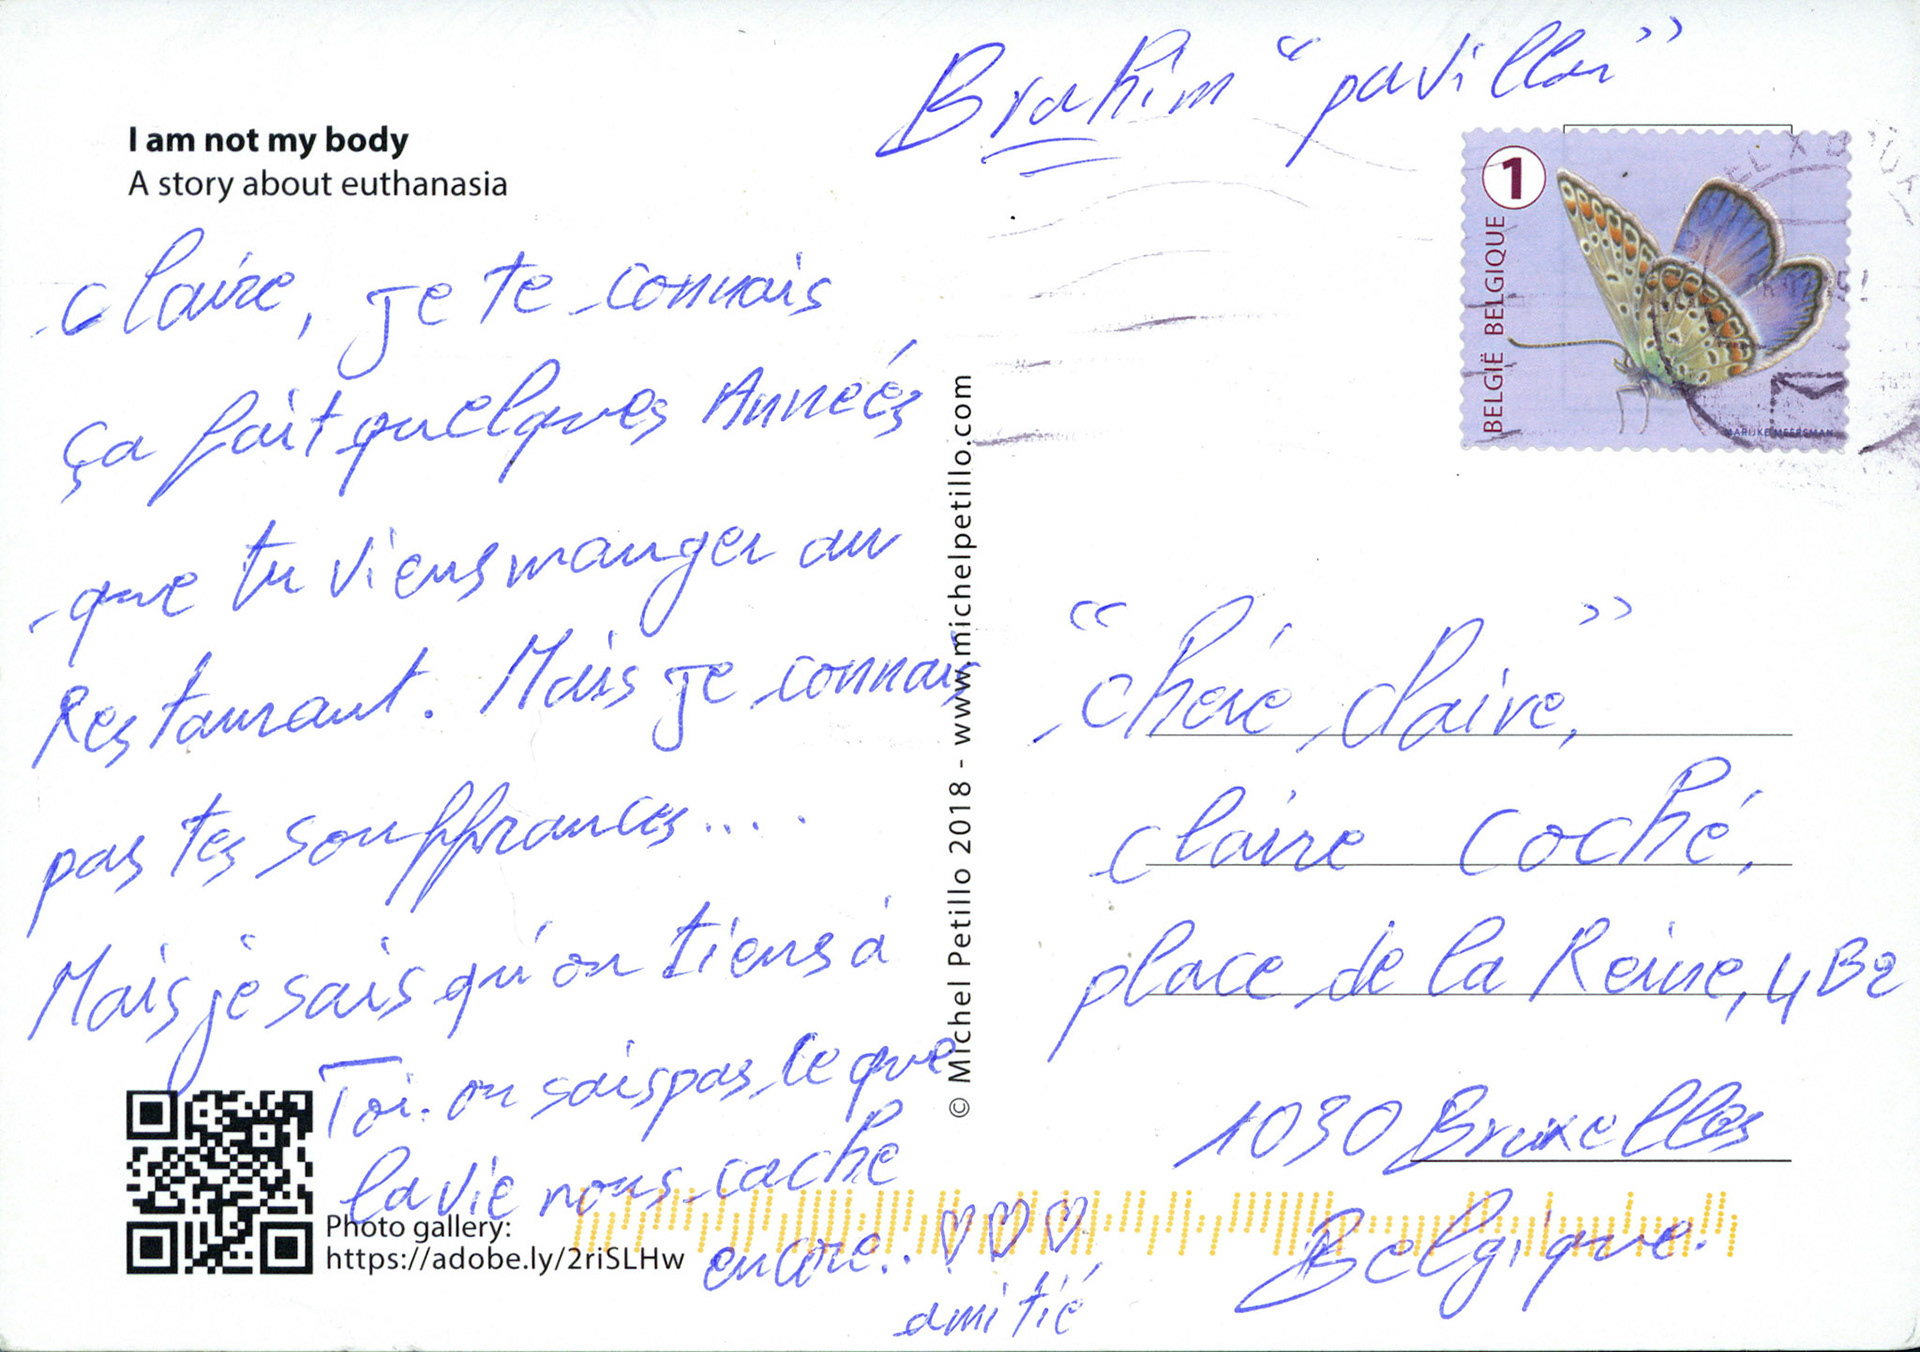 Brahim “pavillon”
I am not my body
A story about euthanasia
claire, je te connais
ça fait quelques Années
que tu viens manger au
Restaurant. Mais je connais
pas tes souffrances....
Mais je sais qu'on tiens à
Toi. on sais pas ce que
la vie nous cache
encore.. ♡♡♡
amitié
Photo gallery:
https://adobe.ly/2riSLHw
© Michel Petillo 2018 - www.michelpetillo.com
1
BELGIË BELGIQUE
MARIJKE MEERSMAN
“chére claire,”
claire coché,
place de la Reine, 4 B2
1030 Bruxelles
Belgique.